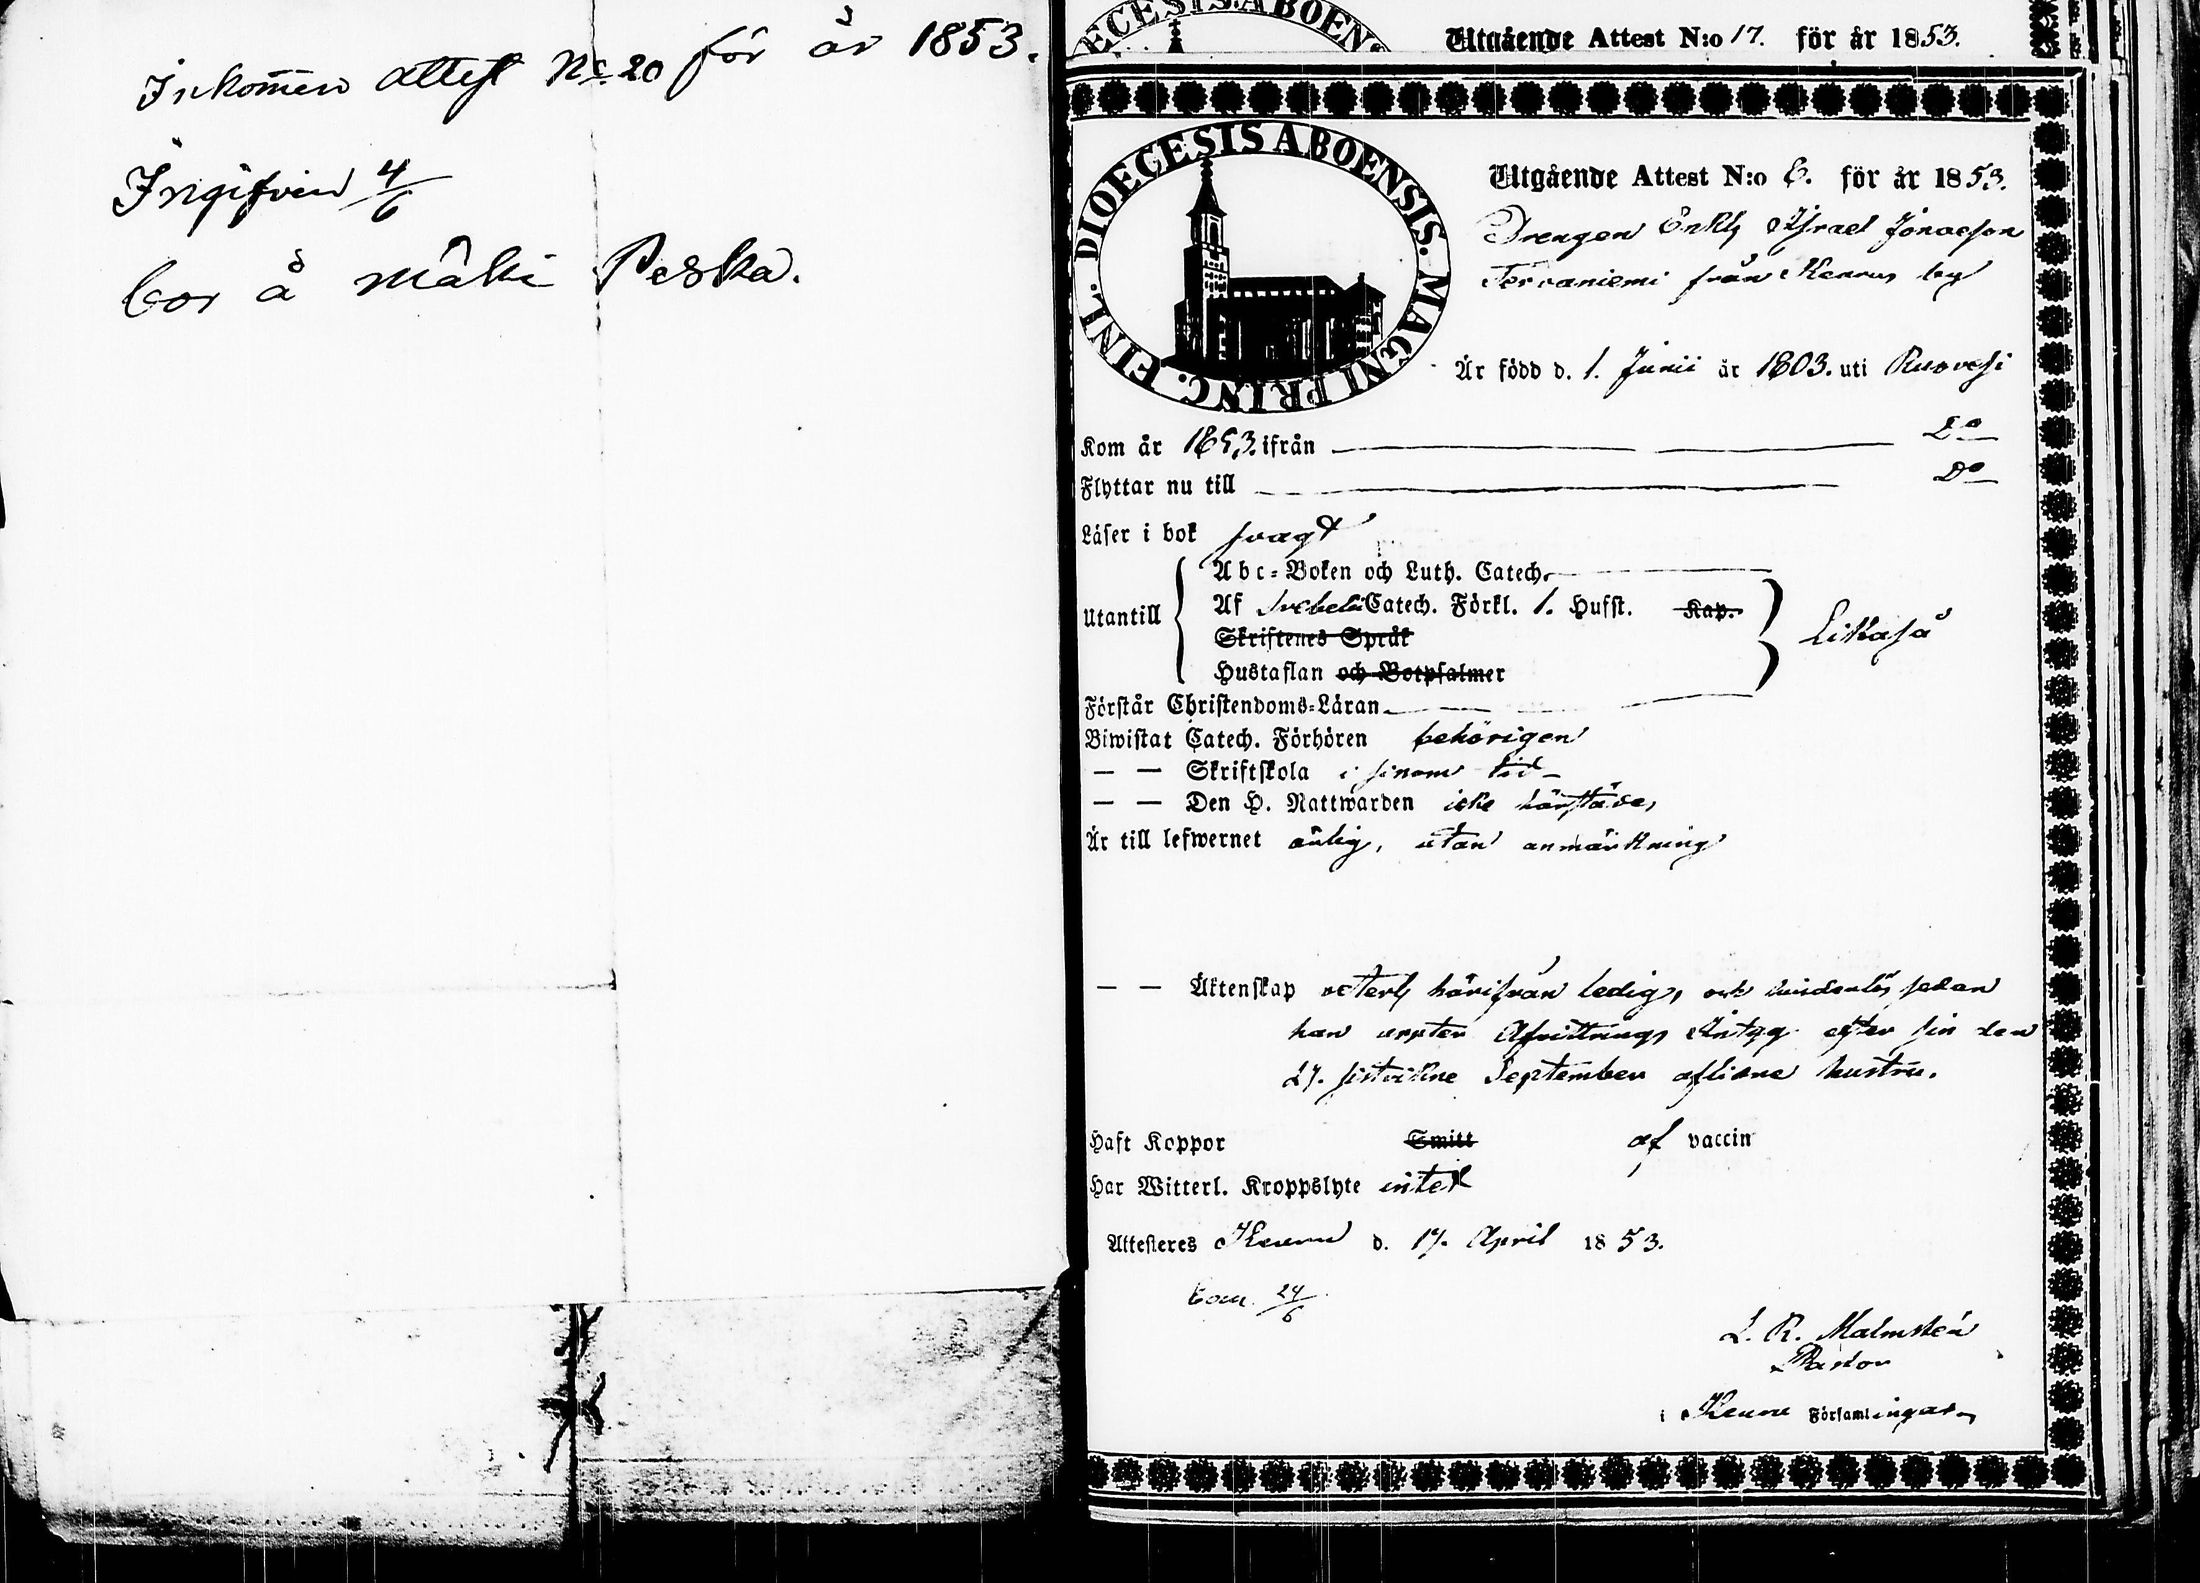 Inkommen attest No 20 för år 1853.
Ingifven 4/6
bor å Mäki Peska.
DIOECESIS ABOENS
Utgående Attest N:o 17. för år 1853.
DIOECESIS ABOENSIS. MAGNI PRINC. FINL.
Utgående Attest N:o 6. för år 1853.
Drengen Enkl. Israel Jonasson
Tervaniemi från Keuru by
Är född d. 1. Junii år 1803. uti Ruovesi
Kom år 1853. ifrån Do
Flyttar nu till Do
Läser i bok svagt
Abc-Boken och Luth. Catech.
Utantill Af Svebelii Catech. Förkl. 1. Hufst. Kap. Likaså
Skriftenes Språk
Hustaflan och Botpsalmer
Förstår Christendoms-Läran
Biwistat Catech. Förhören behörigen
— — Skriftskola i sinom tid
— — Den H. Nattwarden icke härstädes
Är till lefwernet ärlig, utan anmärkning
— — Äktenskap härifrån ledig, och sedan
han Afvittrings Intyg efter sin den
27. sistvikne September aflidne hustru.
Haft Koppor Smitt af vaccin
Har Witterl. Kroppslyte intet
Attesteres Keuru d. 17. April 1853.
24/6
L. R. Malmstén
Pastor
i Keuru Församlingar